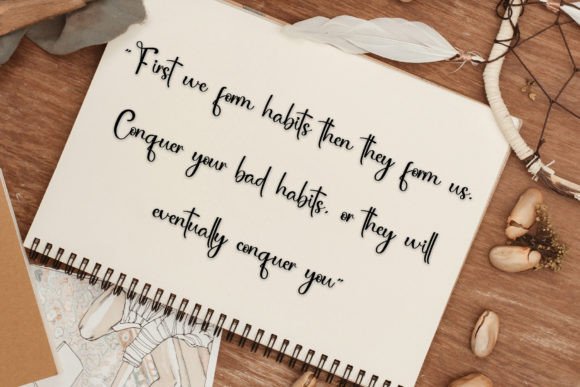 "First we form habits then they form us.
Conquer your bad habits, or they will
eventually conquer you"